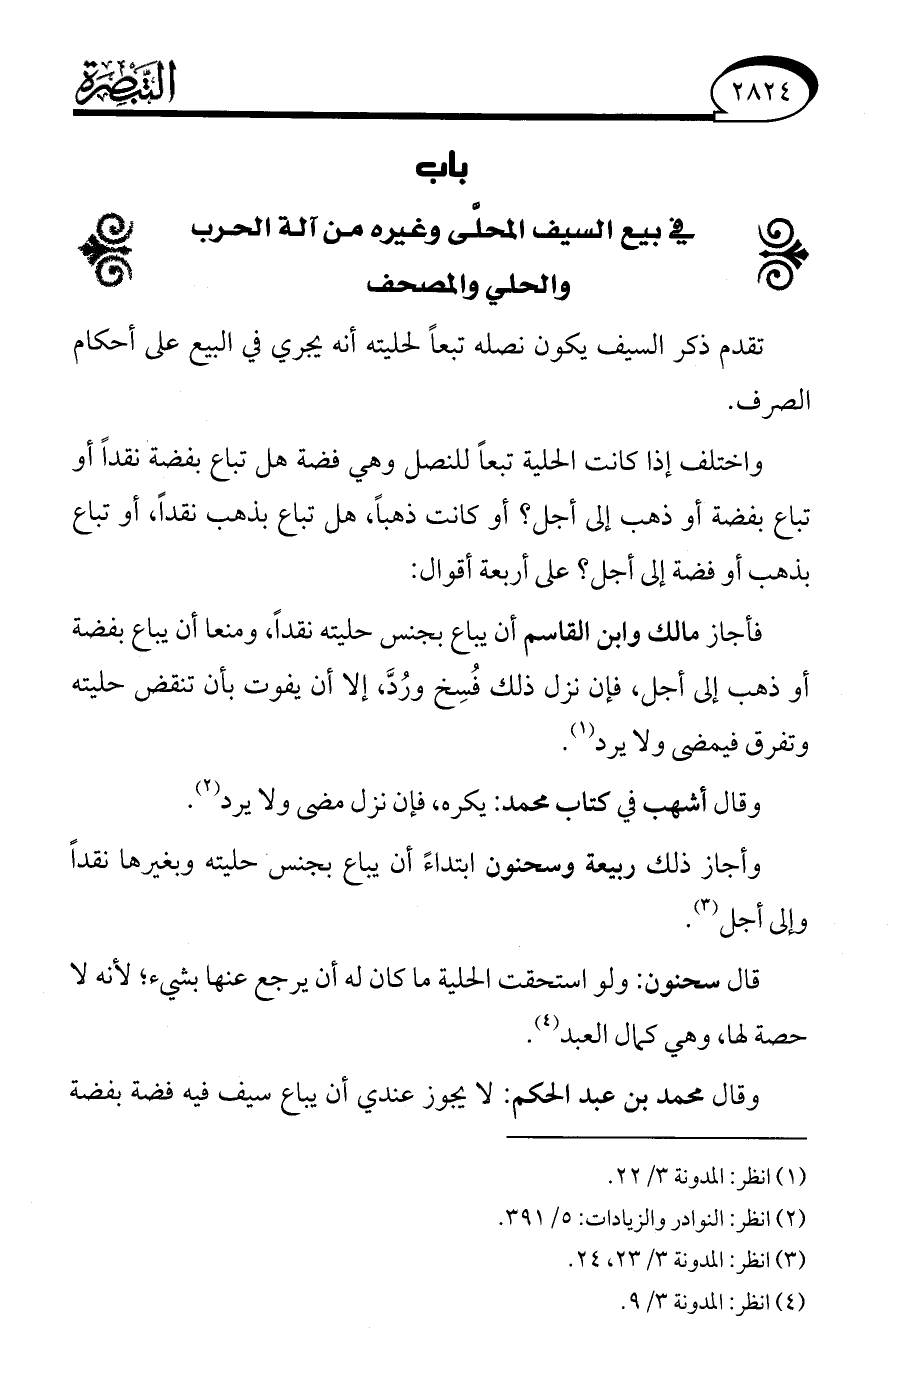 التبصرة
٢٨٢٤
باب
في بيع السيف المحلَّى وغيره من آلة الحرب
والحلي والمصحف
تقدم ذكر السيف يكون نصله تبعاً لحليته أنه يجري في البيع على أحكام
الصرف.
واختلف إذا كانت الحلية تبعاً للنصل وهي فضة هل تباع بفضة نقداً أو
تباع بفضة أو ذهب إلى أجل؟ أو كانت ذهباً، هل تباع بذهب نقداً، أو تباع
بذهب أو فضة إلى أجل؟ على أربعة أقوال:
فأجاز مالك وابن القاسم أن يباع بجنس حليته نقداً، ومنعا أن يباع بفضة
أو ذهب إلى أجل، فإن نزل ذلك فُسِخ ورُدَّ، إلا أن يفوت بأن تنقض حليته
وتفرق فيمضى ولا يرد(١).
وقال أشهب في كتاب محمد: يكره، فإن نزل مضى ولا يرد(٢).
وأجاز ذلك ربيعة وسحنون ابتداءً أن يباع بجنس حليته وبغيرها نقداً
وإلى أجل(٣).
قال سحنون: ولو استحقت الحلية ما كان له أن يرجع عنها بشيء؛ لأنه لا
حصة لها، وهي كمال العبد(٤).
وقال محمد بن عبد الحكم: لا يجوز عندي أن يباع سيف فيه فضة بفضة
(١) انظر: المدونة ٣/ ٢٢.
(٢) انظر: النوادر والزيادات: ٥/ ٣٩١.
(٣) انظر: المدونة ٣/ ٢٣، ٢٤.
(٤) انظر: المدونة ٣/ ٩.